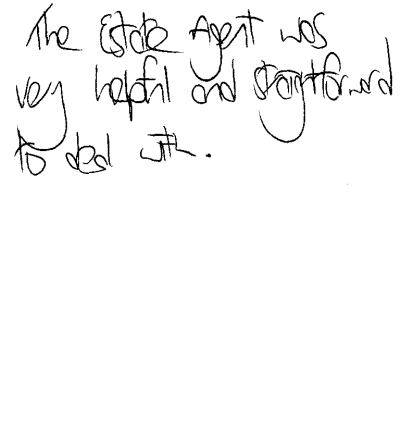 The Estate Agent was
very helpful and straightforward
to deal with.